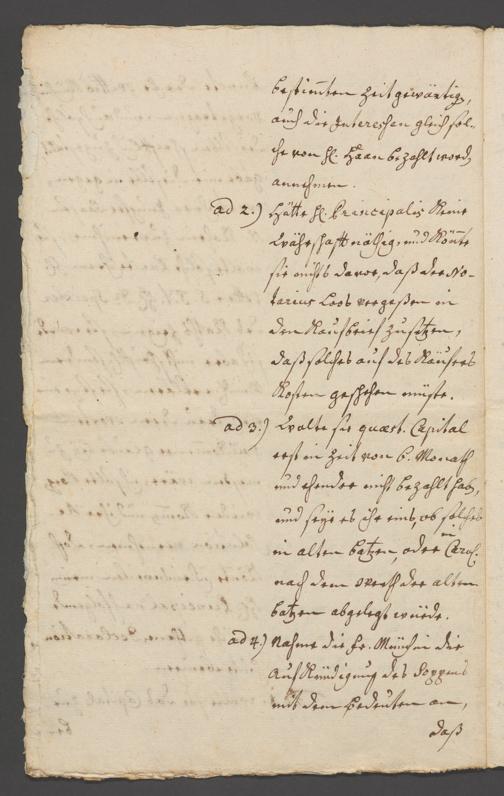 bestimten Zeit gewärtig,
auch die Interessen gleich sol-
che von H. Haan bezahlt word,
annehmen.
ad 2.) Hätte H. Principalis keine
Währschafft nöthig, und könte
sie nichts davor, daß der No-
tarius Loos vergeßen in
den Kaufbrief zu setzen,
daß solches auf des Käufers
Kosten geschehen müste.
ad 3.) Wolte sie quæst. Capital
erst in Zeit von 6. Monath
und ehender nicht bezahlt hab,
und seye es ihr eins, ob solches
in alten batzen, oder in Carol.
nach dem werth der alten
batzen abgelegt würde.
ad 4.) Nahme die Fr. Münchin die
Aufkündigung des
mit dem bedeuten an,
daß